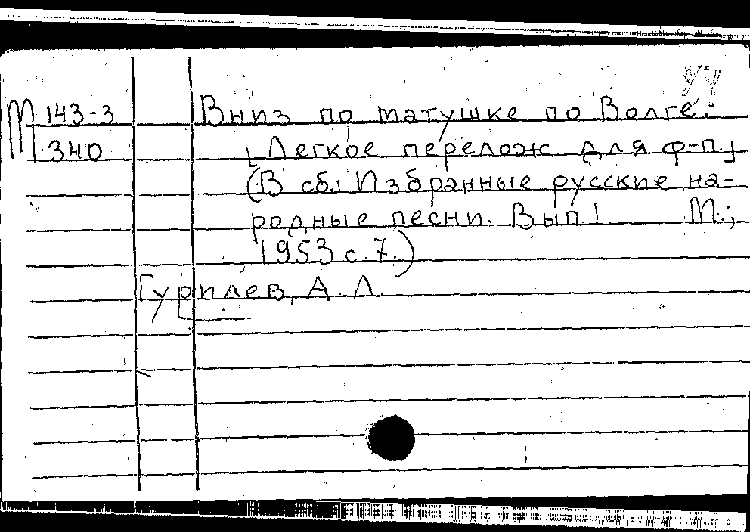 М 143-3 Вниз по матушке по Волге.
340 [Легкое перелож для ф-п]
(В сб.: Избранные русские на-
родные песни. Вып 1 М.;
1953 с. 7.)
А. Л.